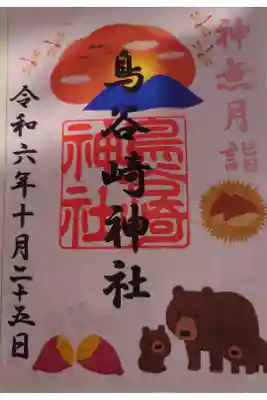 神無月詣
鳥谷崎神社
鳥谷崎
神社
令和六年十月二十五日